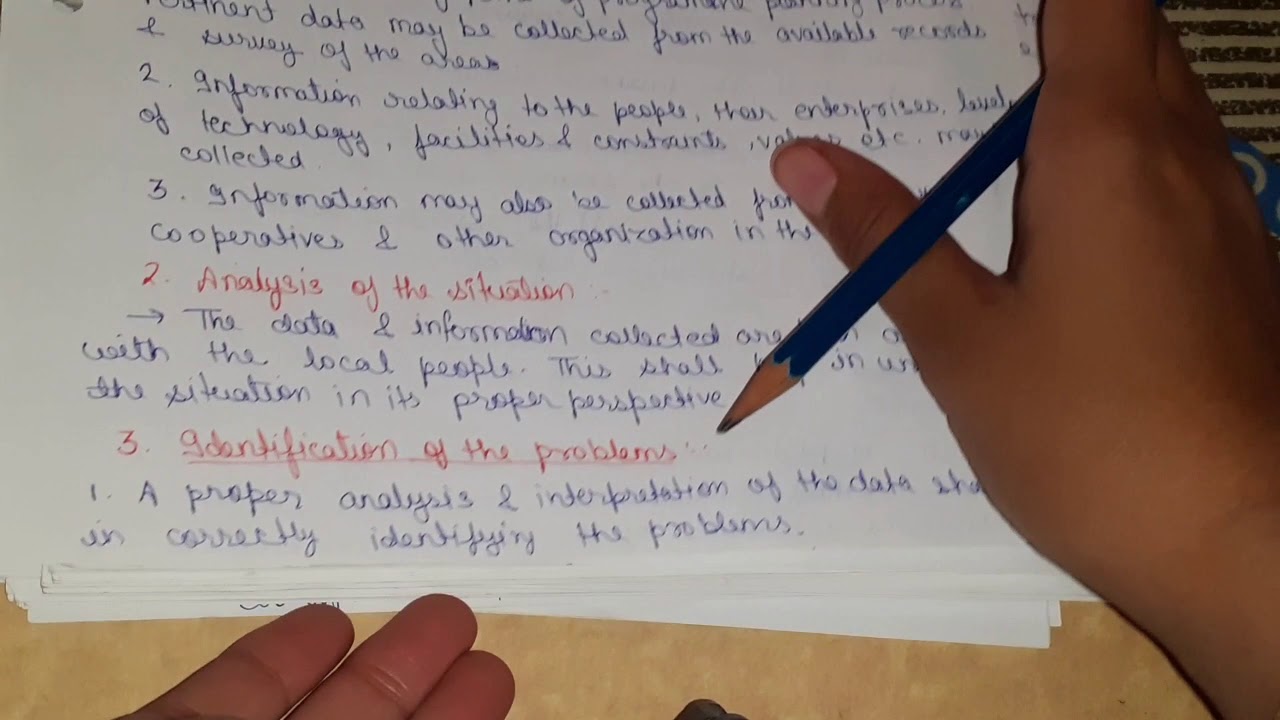 programme planning process
data may be collected from the available records
& survey of the areas
2. Information relating to the people, their enterprises, level
of technology, facilities & constraints, values etc. may
collected.
3. Information may also be collected from
cooperatives & other organization in the
2. Analysis of the situation :-
→ The data & information collected are
with the local people. This shall in
the situation in its proper perspective
3. Identification of the problems :-
1. A proper analysis & interpretation of the data
in correctly identifying the problems.